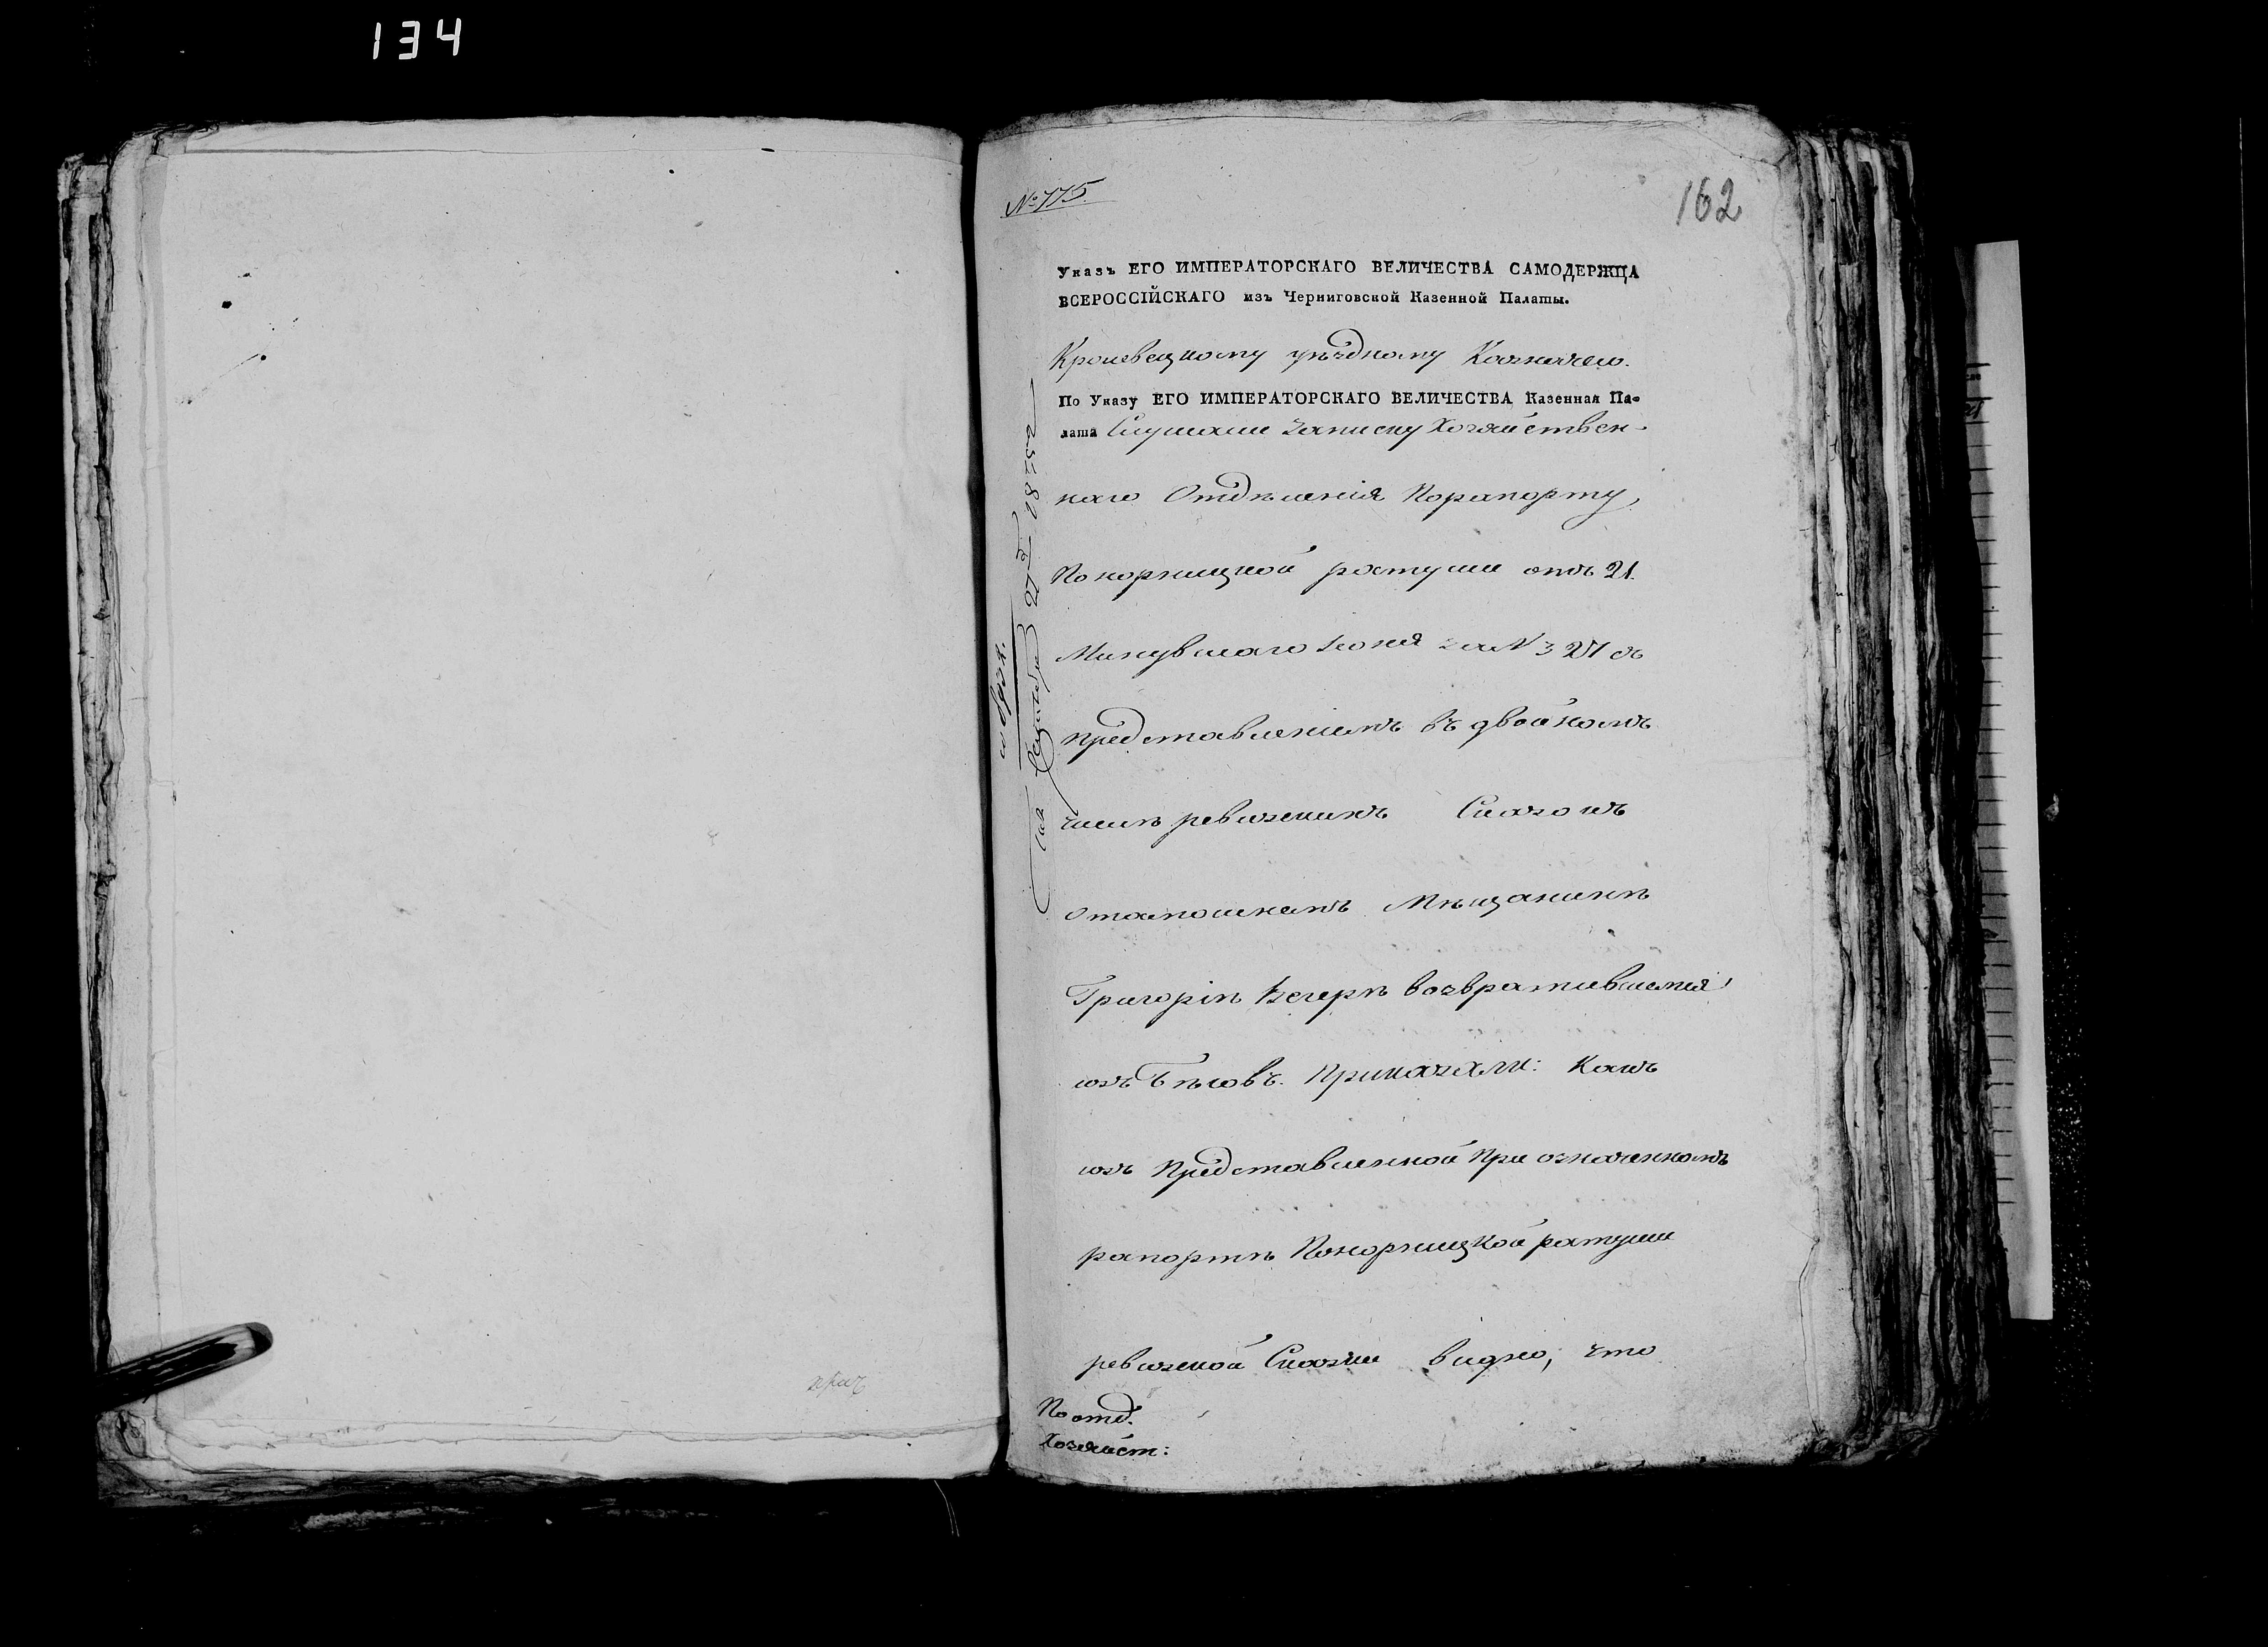 134
№ 775.
162
Указъ ЕГО ИМПЕРАТОРСКАГО ВЕЛИЧЕСТВА САМОДЕРЖЦА
ВСЕРОССІЙСКАГО изъ Черниговской Казенной Палаты.
Кролевецкому уѣздному Казначею.
По Указу ЕГО ИМПЕРАТОРСКАГО ВЕЛИЧЕСТВА Казенная Па-
лата Слушали записку Хозяйствен-
наго Отдѣленія Порапорту,
Понорницкой ратуши отъ 21.
Минувшаго Іюня за N 327 съ
представленіемъ въ двойномъ
числѣ ревизскихъ Сказокъ
отамошнемъ Мѣщанинѣ
Григоріѣ Кегерѣ возвратившемся
изъ Бѣговъ. Приказали: Какъ
изъ Представленной При означенномъ
рапортѣ Понорницкой ратуши
ревизской Сказки видно, что
По отд.
Хозяйст: